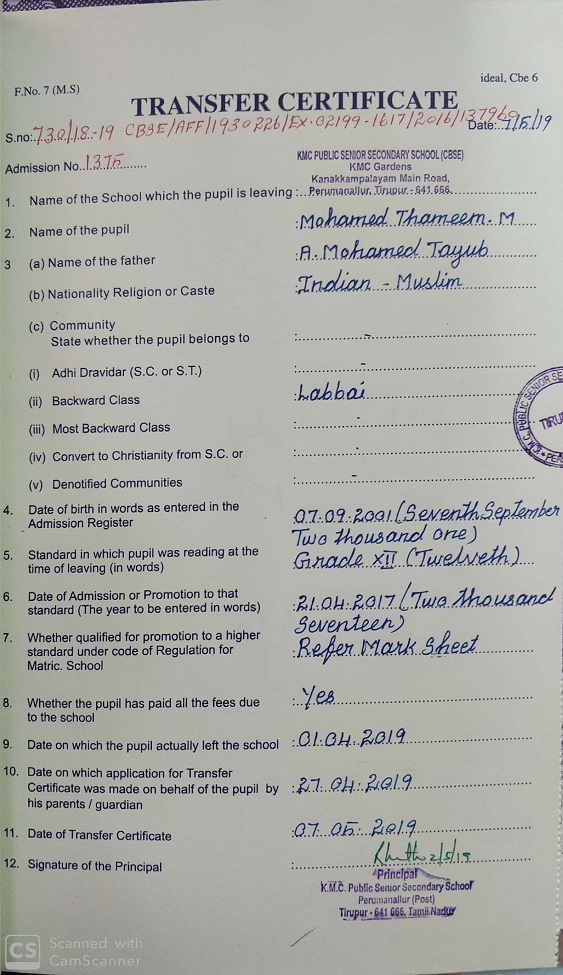 F.No. 7 (M.S)
ideal, Cbe 6
TRANSFER CERTIFICATE
S.no:730/18-19 CBSE/AFF/1930226/EX-02199-1617/2016/137960
Date: 7/5/19
Admission No. 1375
KMC PUBLIC SENIOR SECONDARY SCHOOL (CBSE)
KMC Gardens
Kanakkampalayam Main Road,
1. Name of the School which the pupil is leaving : Perumanallur, Tirupur - 641 666.
2. Name of the pupil : Mohamed Thameem. M
3 (a) Name of the father : A. Mohamed Tayub
(b) Nationality Religion or Caste : Indian - Muslim
(c) Community
State whether the pupil belongs to : -
(i) Adhi Dravidar (S.C. or S.T.) : -
(ii) Backward Class : Labbai
(iii) Most Backward Class : -
(iv) Convert to Christianity from S.C. or : -
(v) Denotified Communities : -
4. Date of birth in words as entered in the
Admission Register
07.09.2001 (Seventh September
Two thousand one)
5. Standard in which pupil was reading at the
time of leaving (in words)
Grade XII (Twelveth)
6. Date of Admission or Promotion to that
standard (The year to be entered in words)
: 21.04.2017 (Two thousand
Seventeen)
7. Whether qualified for promotion to a higher
standard under code of Regulation for
Matric. School
: Refer Mark Sheet
8. Whether the pupil has paid all the fees due
to the school
: Yes
9. Date on which the pupil actually left the school : 01.04.2019
10. Date on which application for Transfer
Certificate was made on behalf of the pupil by
his parents / guardian
: 27.04.2019
11. Date of Transfer Certificate : 07.05.2019
12. Signature of the Principal :
Principal
K.M.C. Public Senior Secondary School
Perumanallur (Post)
Tirupur - 641 666. Tamil Nadu
CS Scanned with
CamScanner